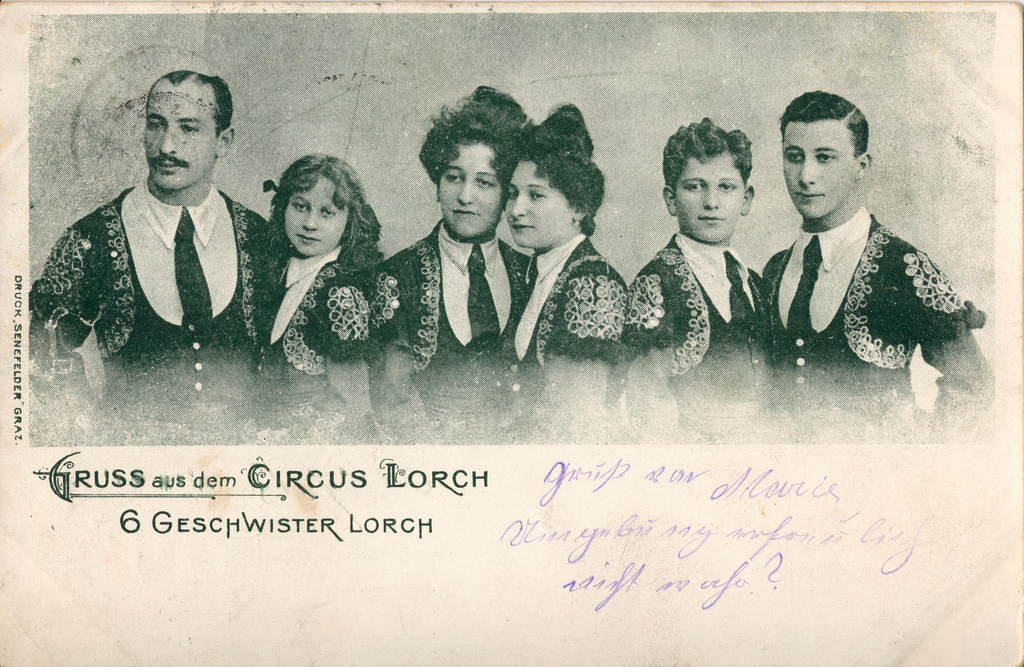 DRUCK „SENEFELDER“ GRAZ.
GRUSS aus dem CIRCUS LORCH
6 GESCHWISTER LORCH
Gruß von Marie
Umgebung erfreulich
nicht wahr?